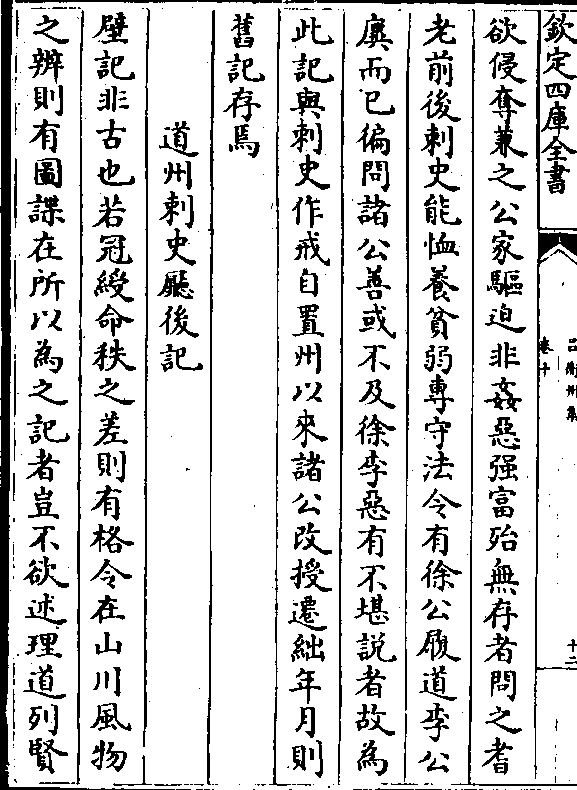 欽定四庫全書
呂衡州集
卷十
十二
欲侵奪兼之公家驅迫非姦惡强富殆無存者問之耆
老前後刺史能恤養貧弱專守法令有徐公履道李公
廙而已徧問諸公善或不及徐李惡有不堪説者故為
此記與刺史作戒自置州以來諸公改授遷絀年月則
舊記存焉
道州刺史廳後記
壁記非古也若冠綬命秩之差則有格令在山川風物
之辨則有圖諜在所以為之記者豈不欲述理道列賢